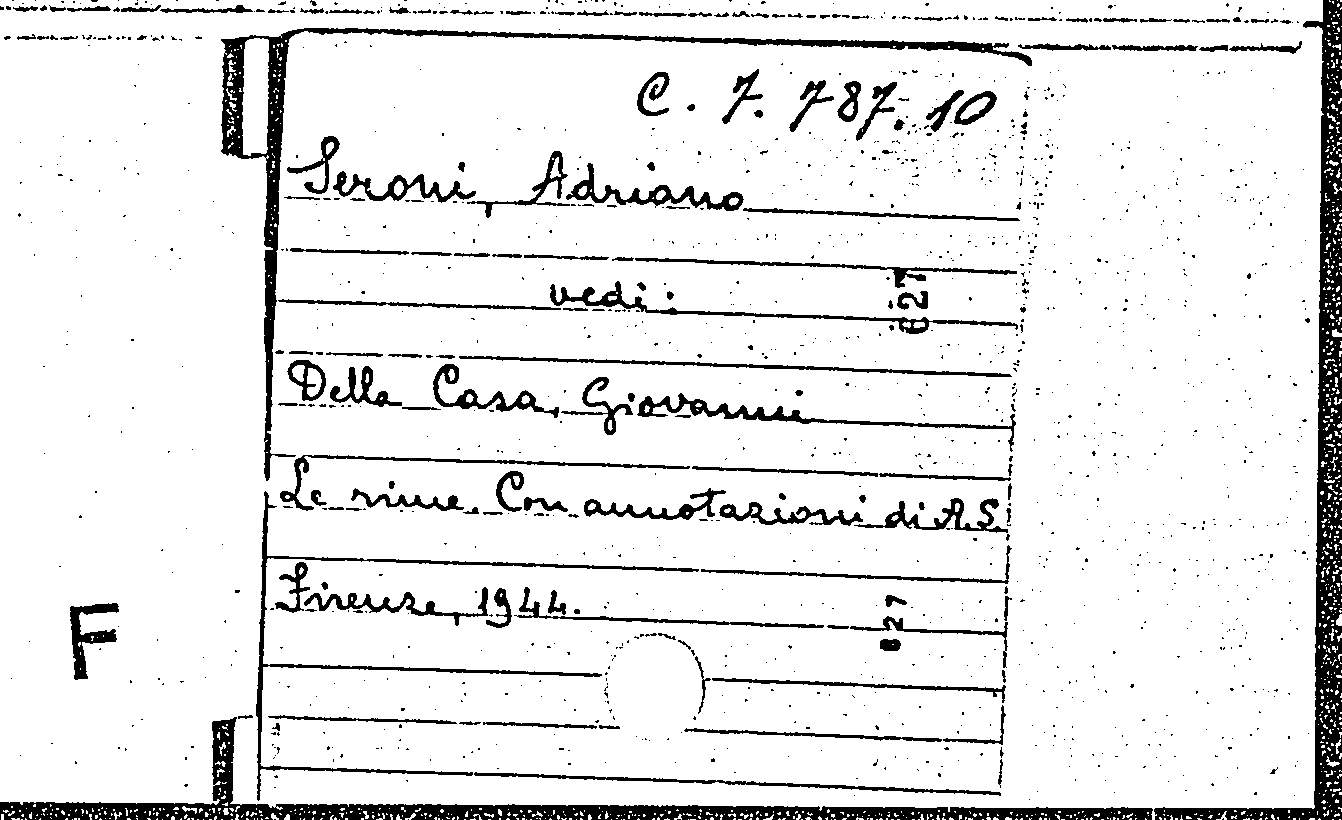 C. 7. 787. 10
Seroni, Adriano
vedi:
627
Della Casa, Giovanni
Le rime. Con annotazioni di A.S.
Firenze, 1944.
027
F